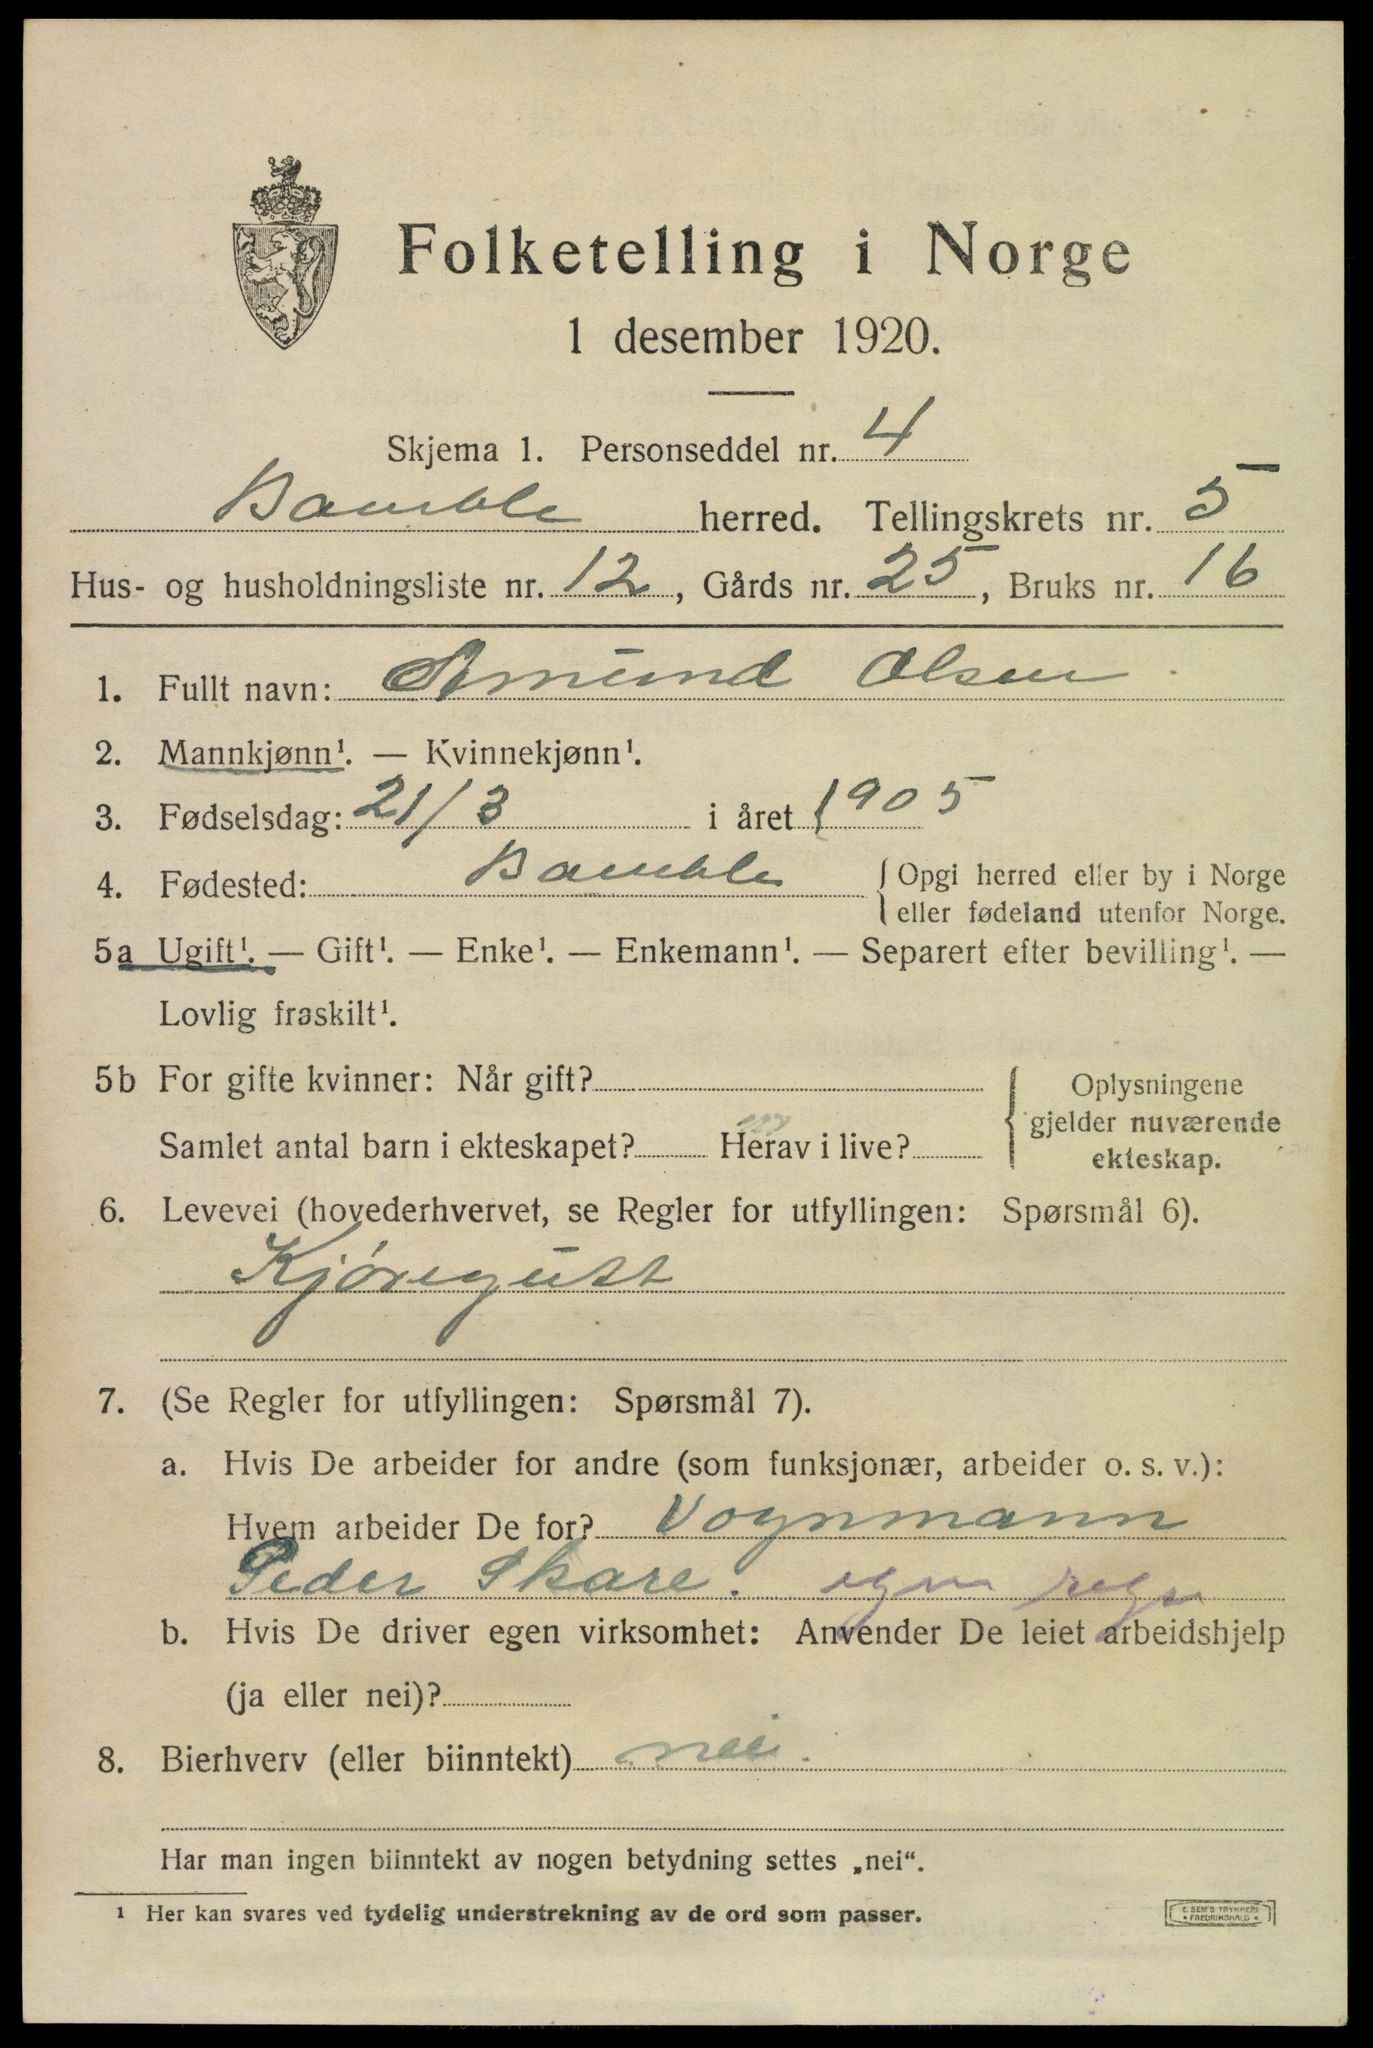 Folketelling i Norge
1 desember 1920.
Skjema 1. Personseddel nr. 4
Bamble herred. Tellingskrets nr. 5
Hus- og husholdningsliste nr. 12, Gårds nr. 25, Bruks nr. 16
1. Fullt navn: Amund Olsen
2. Mannkjønn¹. — Kvinnekjønn¹.
3. Fødselsdag: 21/3 i året 1905
4. Fødested: Bamble { Opgi herred eller by i Norge
eller fødeland utenfor Norge.
5a Ugift¹. — Gift¹. — Enke¹. — Enkemann¹. — Separert efter bevilling¹. —
Lovlig fraskilt¹.
5b For gifte kvinner: Når gift?
Samlet antal barn i ekteskapet? Herav i live?
{ Oplysningene
gjelder nuværende
ekteskap.
6. Levevei (hovederhvervet, se Regler for utfyllingen: Spørsmål 6).
Kjøregutt
7. (Se Regler for utfyllingen: Spørsmål 7).
a. Hvis De arbeider for andre (som funksjonær, arbeider o. s. v.):
Hvem arbeider De for? Vognmann
Peder Skare. egen regn
b. Hvis De driver egen virksomhet: Anvender De leiet arbeidshjelp
(ja eller nei)?
8. Bierhverv (eller biinntekt) nei.
Har man ingen biinntekt av nogen betydning settes „nei“.
¹ Her kan svares ved tydelig understrekning av de ord som passer.
E. SEM'S TRYKKERI
• FREDRIKSHALD •